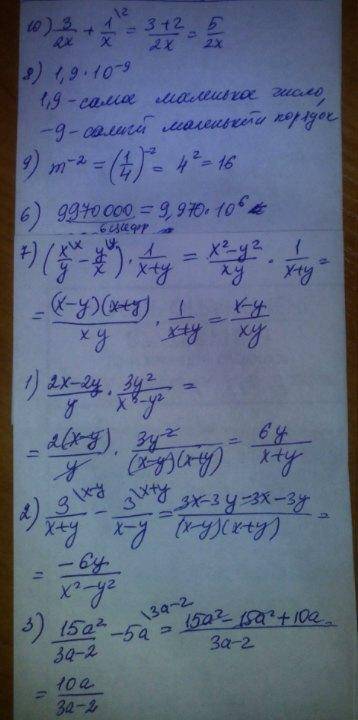 10) 3/2x + 1/x \2 = 3+2/2x = 5/2x
8) 1,9·10⁻⁹
1,9-самое маленькое число,
-9-самый маленький порядок
9) m⁻² = (1/4)⁻² = 4² = 16
6) 9970000 = 9,970·10⁶
6 цифр
7) (x/y \x - y/x \y) · 1/x+y = x²-y²/xy · 1/x+y =
= (x-y)(x+y)/xy · 1/x+y = x-y/xy
1) 2x-2y/y · 3y²/x²-y² =
= 2(x-y)/y · 3y²/(x-y)(x+y) = 6y/x+y
2) 3/x+y \x-y - 3/x-y \x+y = 3x-3y-3x-3y/(x-y)(x+y) =
= -6y/x²-y²
3) 15a²/3a-2 - 5a \3a-2 = 15a²-15a²+10a/3a-2 =
= 10a/3a-2